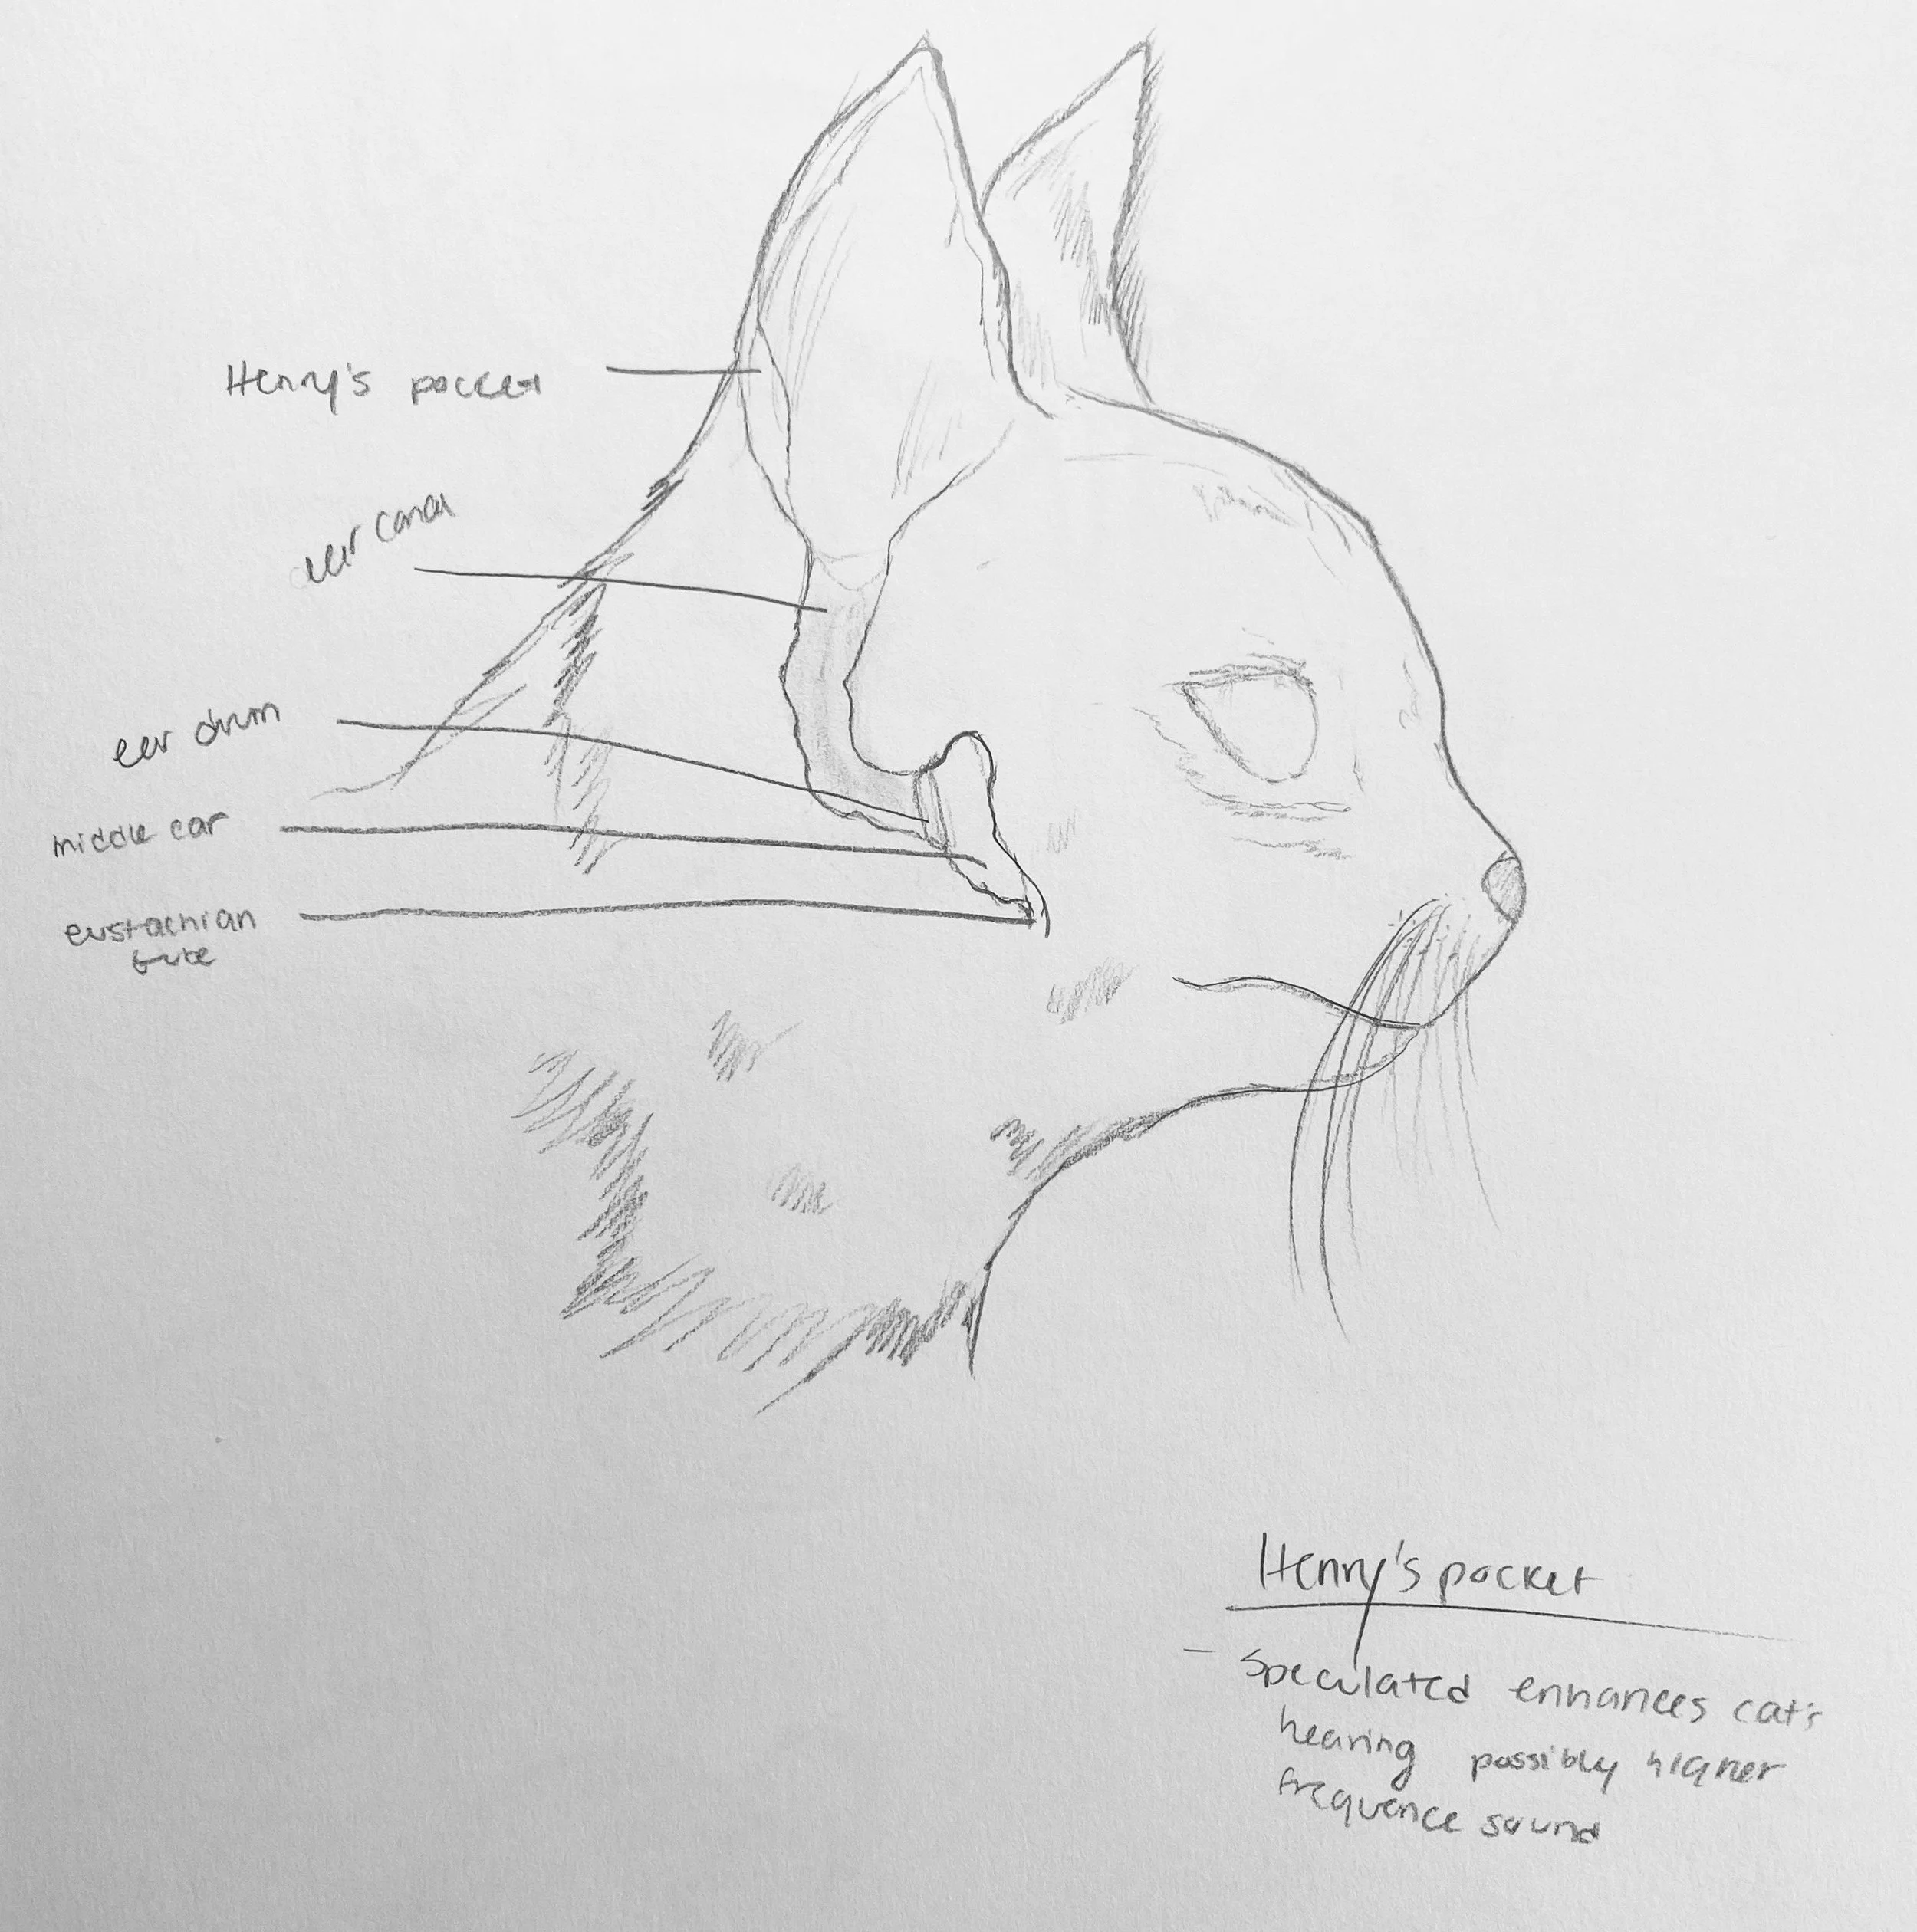 Henry's pocket
ear canal
ear drum
middle ear
eustachian
tube
Henry's pocket
- speculated enhances cat's
hearing possibly higher
frequence sound